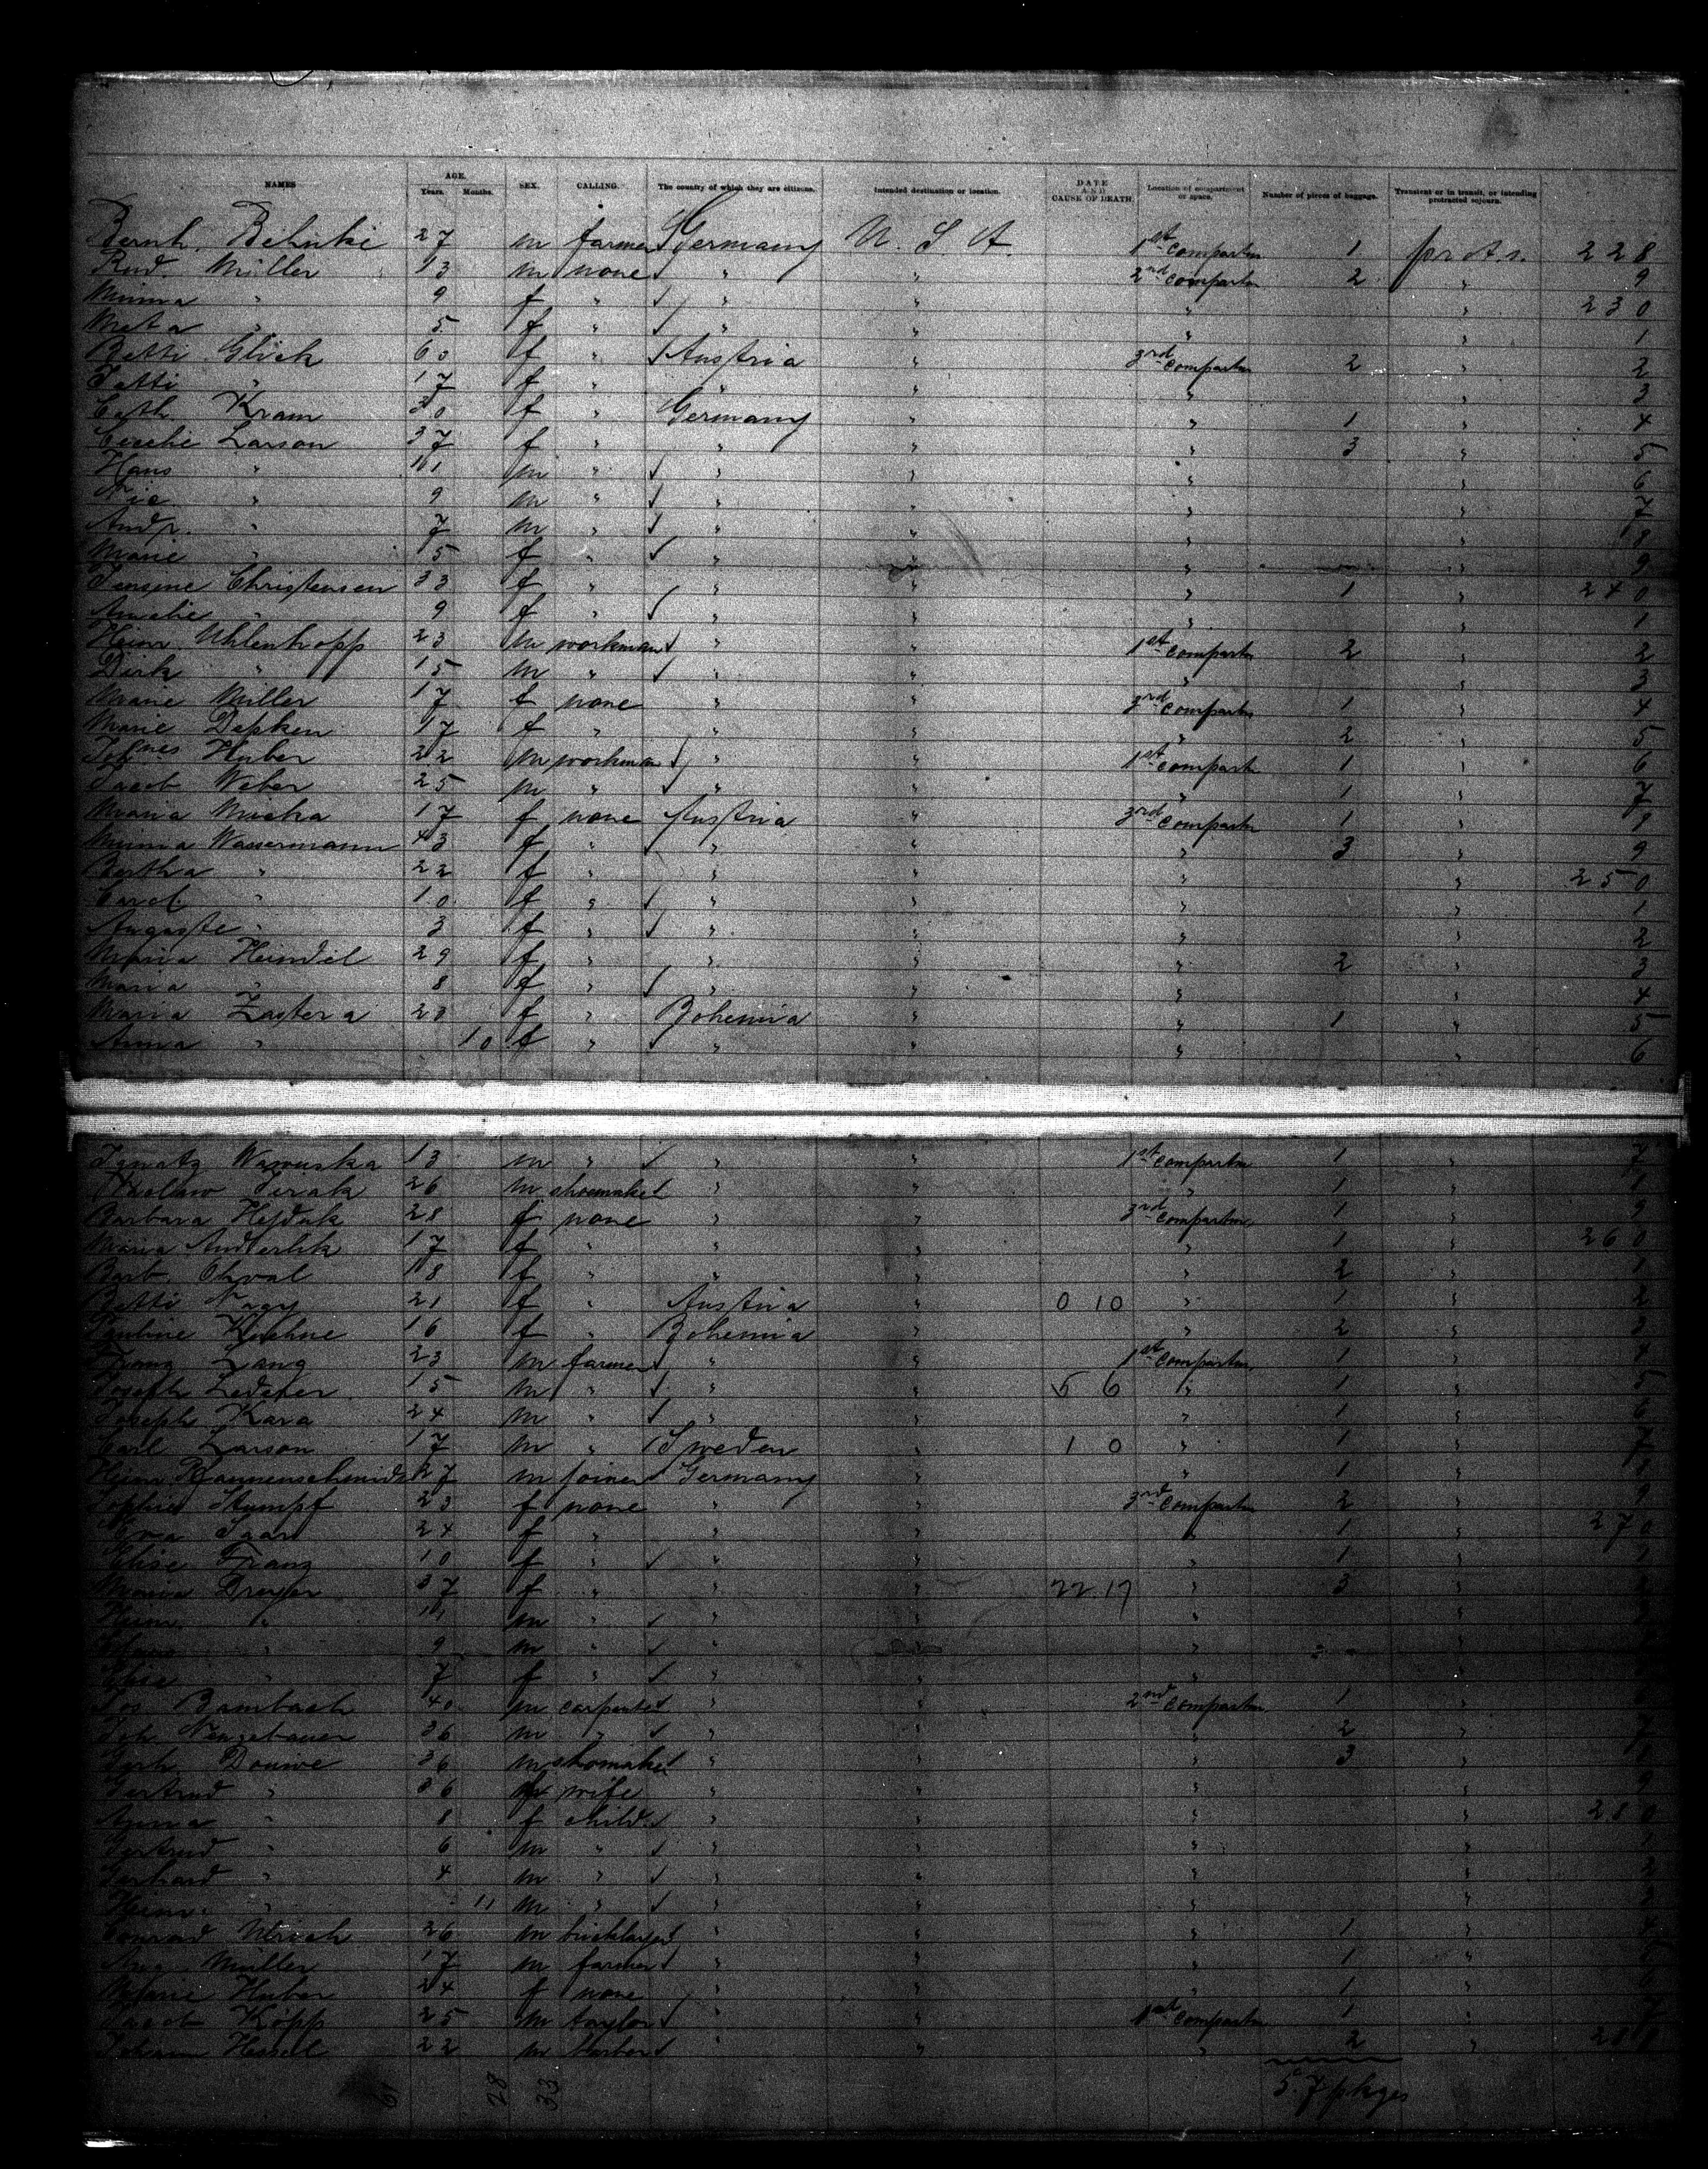 NAMES AGE. Years. Months. SEX. CALLING. The country of which they are citizens. Intended destination or location. DATE AND CAUSE OF DEATH. Location of compartment or space. Number of pieces of baggage. Transient or in transit, or intending protracted sojourn.
Bernh. Behnke 27 m farmer Germany U. S. A. 1st compartm 1 prot. s. 228
Rud. Müller 13 m none " " 2nd compartm 2 " 9
Minna " 9 f " " " " " 230
Meta " 5 f " " " " " 1
Betti Glück 60 f " Austria " 3rd compartm 2 " 2
" 17 f " " " " " 3
Cath. Kram 30 f " Germany " " 1 " 4
Larson 37 f " " " " 3 " 5
Hans " 11 m " " " " " 6
Nic " 9 m " " " " " 7
Andr. " 7 m " " " " " 8
Marie " 5 f " " " " " 9
Christensen 33 f " " " " 1 " 240
Amalie " 9 f " " " " " 1
Heinr. Uhlenhopp 23 m workman " " 1st compartm 2 " 2
Dirk " 15 m " " " " " 3
Marie Müller 17 f none " " 3rd compartm 1 " 4
Marie Depken 17 f " " " " 2 " 5
Johnes Huber 22 m workman " " 1st compartm 1 " 6
Jacob Weber 25 m " " " " 1 " 7
Maria 17 f none Austria " 3rd compartm 1 " 8
Minna Wassermann 43 f " " " " 3 " 9
Bertha " 22 f " " " " " 250
Carol. " 10 f " " " " " 1
Auguste " 3 f " " " " " 2
Maria Heindil 29 f " " " " 2 " 3
Maria " 8 f " " " " " 4
Maria Zastera 23 f " Bohemia " " 1 " 5
Anna " 10 f " " " " " 6
Ignatz Wawruska 13 m " " " 1st compartm 1 " 7
26 m shoemaker " " " 1 "
Barbara Hejduk 28 f none " " 3rd compartm 1 " 9
Maria Anderlik 17 f " " " " 1 " 260
Barb. Chval 18 f " " " " 2 " 1
Betti Nagy 21 f " Austria " 0 10 " 1 " 2
Pauline Kuehne 16 f " Bohemia " " 2 " 3
Franz Lang 23 m farmer " " 1st compartm 1 " 4
Joseph Lederer 15 m " " " 5 6 " 1 " 5
Joseph Kara 24 m " " " " 1 " 6
Carl Larson 17 m " Sweden " 1 0 " 1 " 7
Heinr. 27 m joiner Germany " " 1 "
Sophie Stumpf 23 f none " " 3rd compartm 2 " 9
Eva 24 f " " " " 1 " 270
Elise Franz 10 f " " " " 1 " 1
Maria Dreyer 37 f " " " 22 17 " 3 "
Heinr. " 11 m " " " " "
" 9 m " " " " "
" 7 f " " " " "
Jos Bambach 40 m carpenter " 2nd compartm 1 "
Joh. Neugebauer 36 m " " " 2 " 7
Gerh. Douwe 36 m shomaker " " " 3 "
Gertrud " 36 f wife " " " " 9
" 8 f child " " " " 280
Gertrud " 6 m " " " " "
Gerhard " 4 m " " " " "
Heinr. " 11 m " " " " "
Conrad Ulrich 26 m bricklayer " " " 1 "
Aug. Müller 17 m farmer " " " 1 "
Marie Huber 24 f none " " " 1 "
Jacob Köpp 25 m taylor " " 1st compartm 1 " 7
Johann Hessell 22 m barber " " " 2 " 288
61 28 33 57 pkges